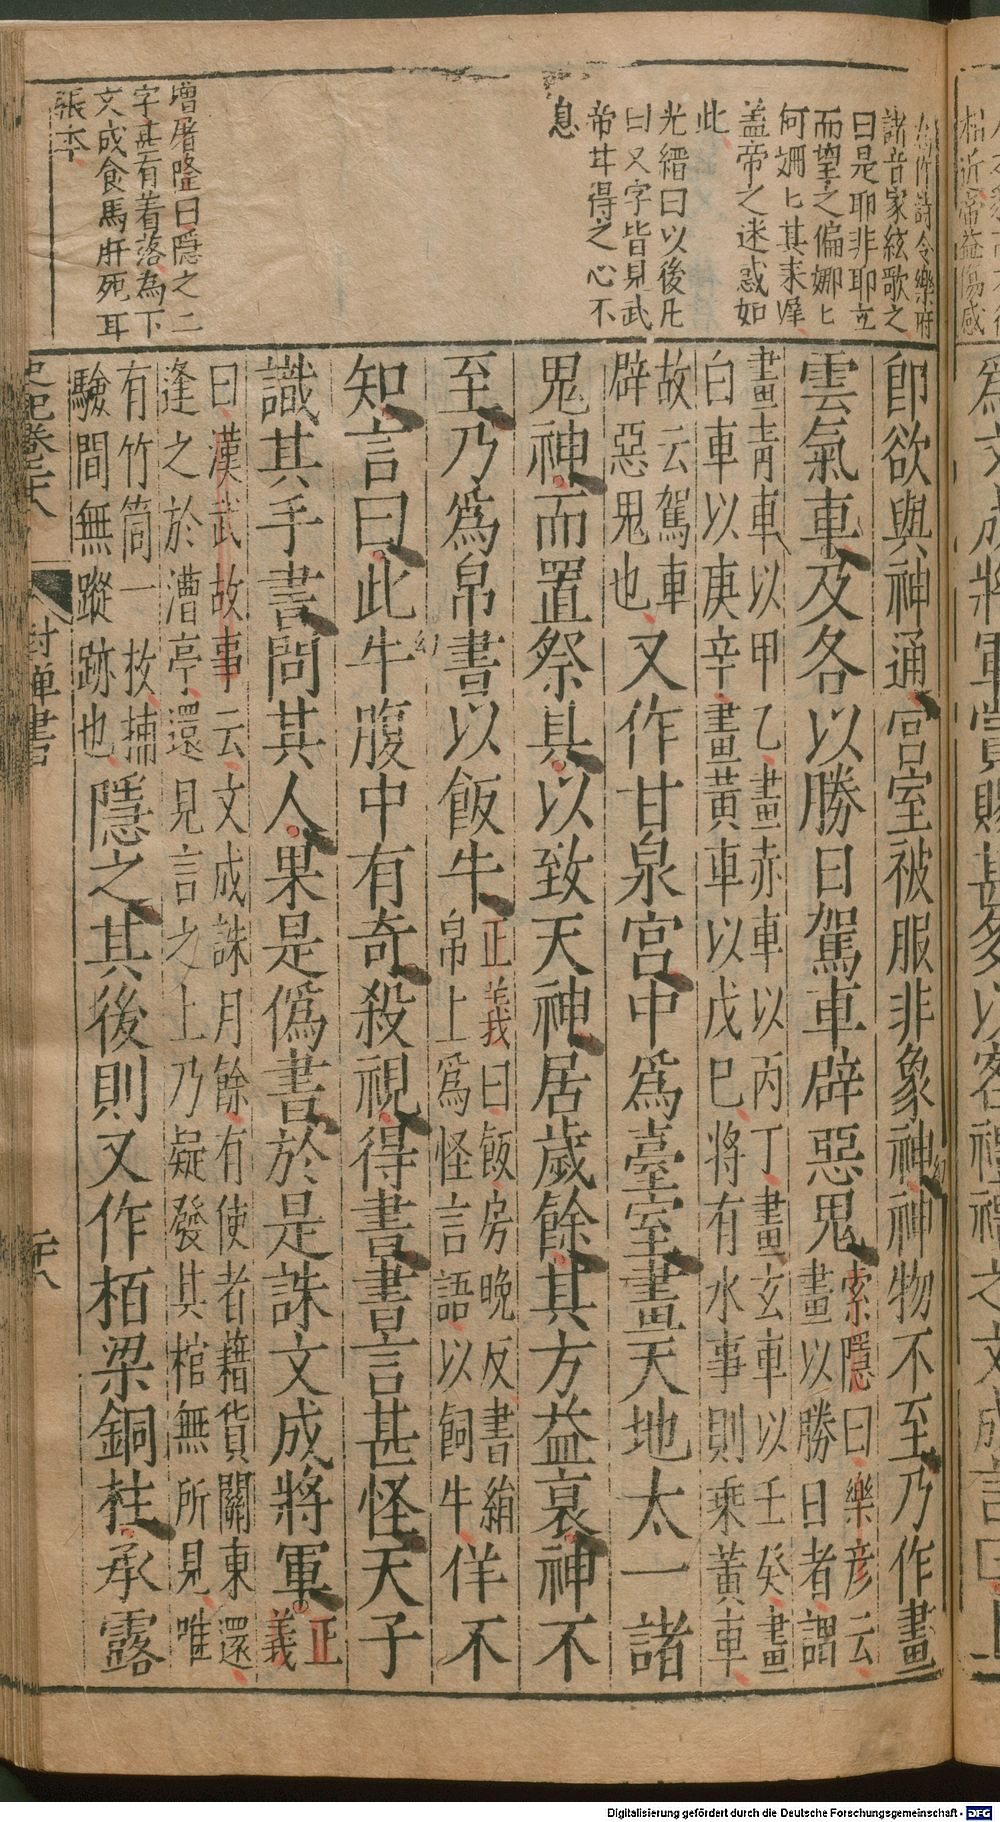 為作詩令樂府
諸音家絃歌之
曰是耶非耶立
而望之偏娜〻
何姍〻其来遅
盖帝之迷惑如
此
光縉曰以後凡
曰又字皆見武
帝求得之心不
息
增屠隆曰隱之二
字甚有着落為下
文成食馬肝死耳
張本
即欲與神通宮室被服非象神神物不至乃作畫
雲氣車及各以勝日駕車辟惡鬼
索隱曰樂彦云
畫以勝日者謂
畫青車以甲乙畫赤車以丙丁畫玄車以壬癸畫
白車以庚辛畫黃車以戊巳將有水事則乘黃車
故云駕車
辟惡鬼也
又作甘泉宮中為臺室畫天地太一諸
鬼神而置祭具以致天神居歲餘其方益衰神不
至乃為帛書以飯牛
正義曰飯房晚反書絹
帛上為怪言語以飼牛
佯不
知言曰此牛腹中有奇殺視得書書言甚怪天子
識其手書問其人果是偽書於是誅文成將軍
正
義
曰漢武故事云文成誅月餘有使者藉貨關東還
逢之於漕亭還見言之上乃疑發其棺無所見唯
有竹筒一枚捕
驗間無蹤跡也
隱之其後則又作栢梁銅柱承露
史記卷二十八
封禪書
二十八
為文成將軍賞賜甚多以客禮禮之文成言曰上
Digitalisierung gefördert durch die Deutsche Forschungsgemeinschaft - DFG